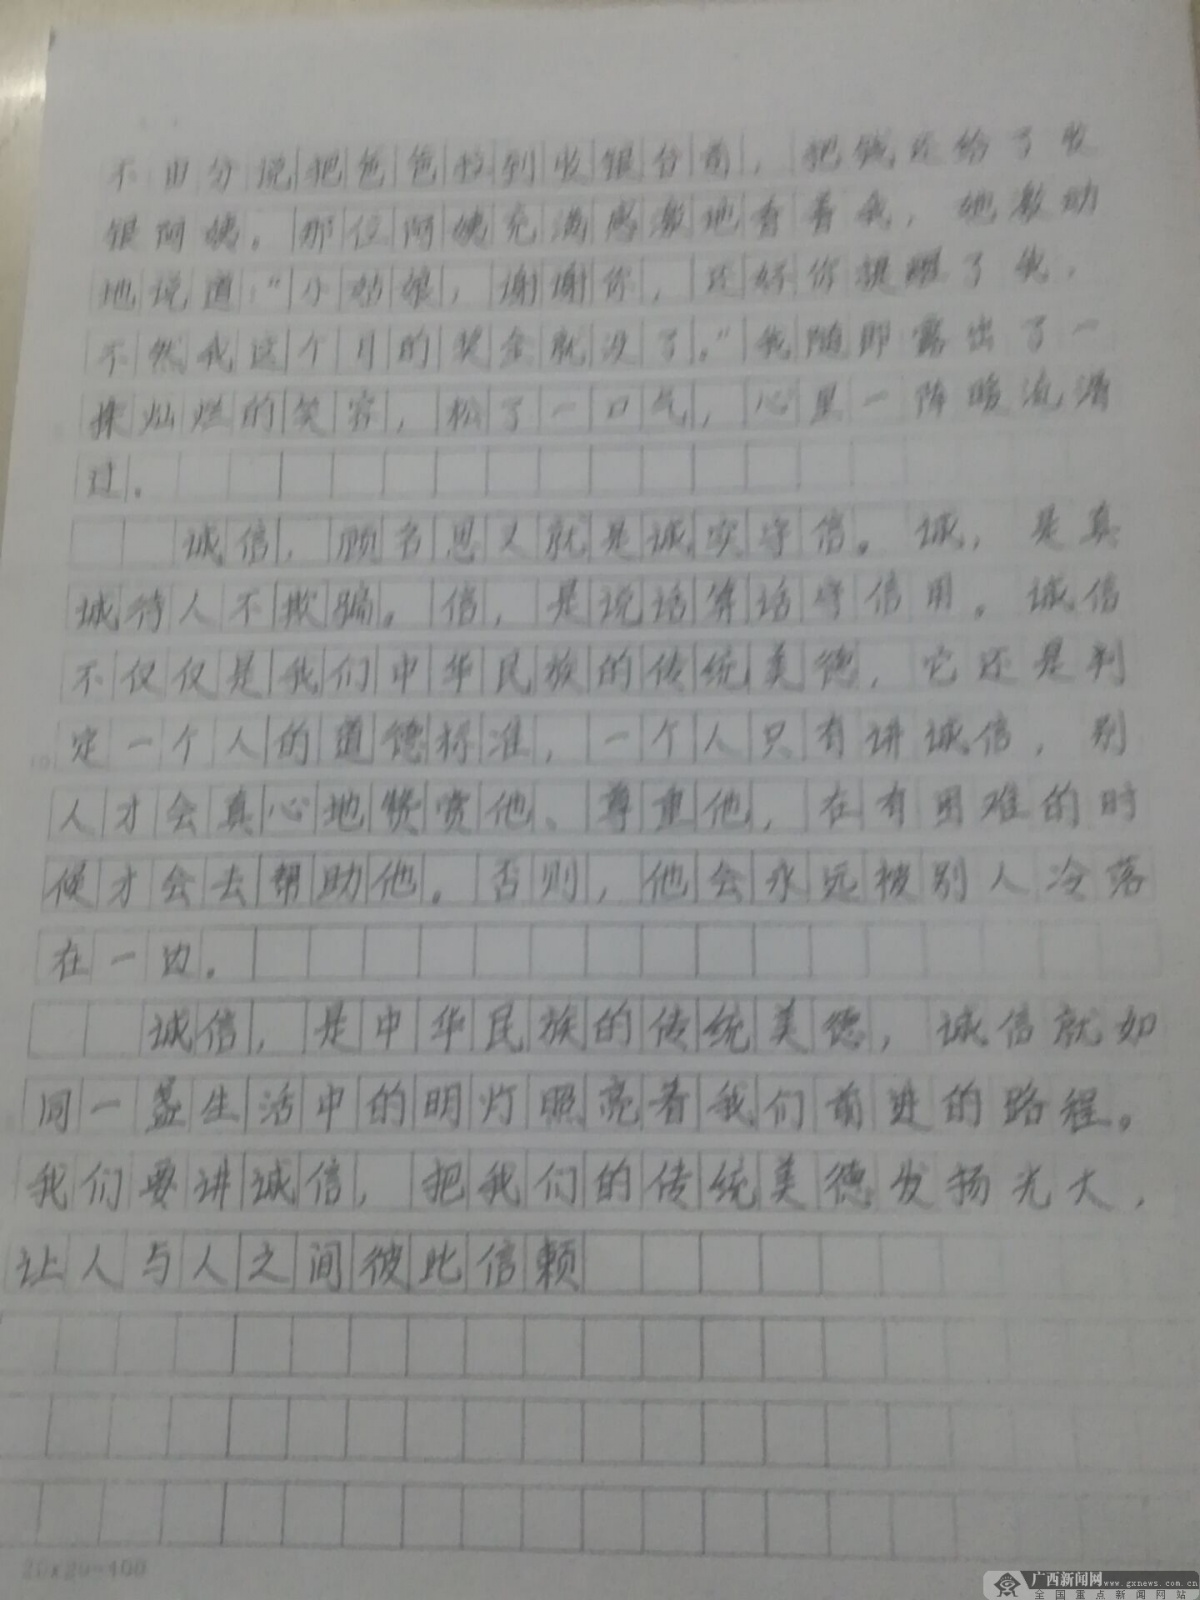 不由分说把爸爸拉到收银台前，把钱还给了收
银阿姨。那位阿姨充满感激地看着我，她激动
地说道：“小姑娘，谢谢你，还好你提醒了我，
不然我这个月的奖金就没了。”我随即露出了一
抹灿烂的笑容，松了一口气，心里一阵暖流涌
过。
诚信，顾名思义就是诚实守信。诚，是真
诚待人不欺骗。信，是说话算话守信用。诚信
不仅仅是我们中华民族的传统美德，它还是判
定一个人的道德标准，一个人只有讲诚信，别
人才会真心地赞赏他、尊重他，在有困难的时
候才会去帮助他。否则，他会永远被别人冷落
在一边。
诚信，是中华民族的传统美德，诚信就如
同一盏生活中的明灯照亮着我们前进的路程。
我们要讲诚信，把我们的传统美德发扬光大，
让人与人之间彼此信赖
20×20=400
广西新闻网 www.gxnews.com.cn
全国重点新闻网站